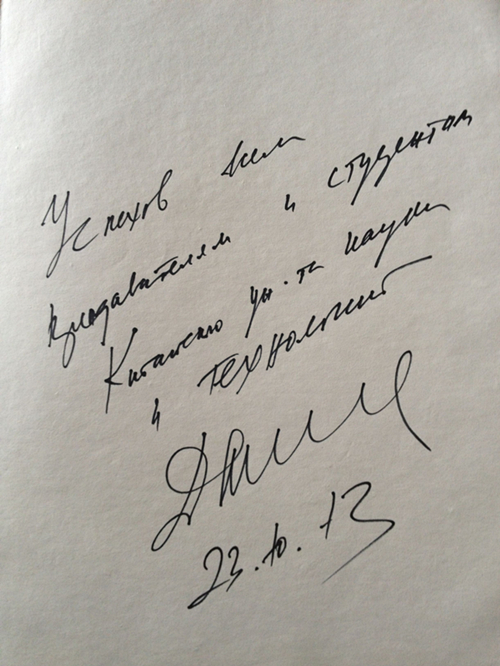 Успехов всем
преподавателям и студентам
Китайского ун-та науки
и технологий
23.10.13